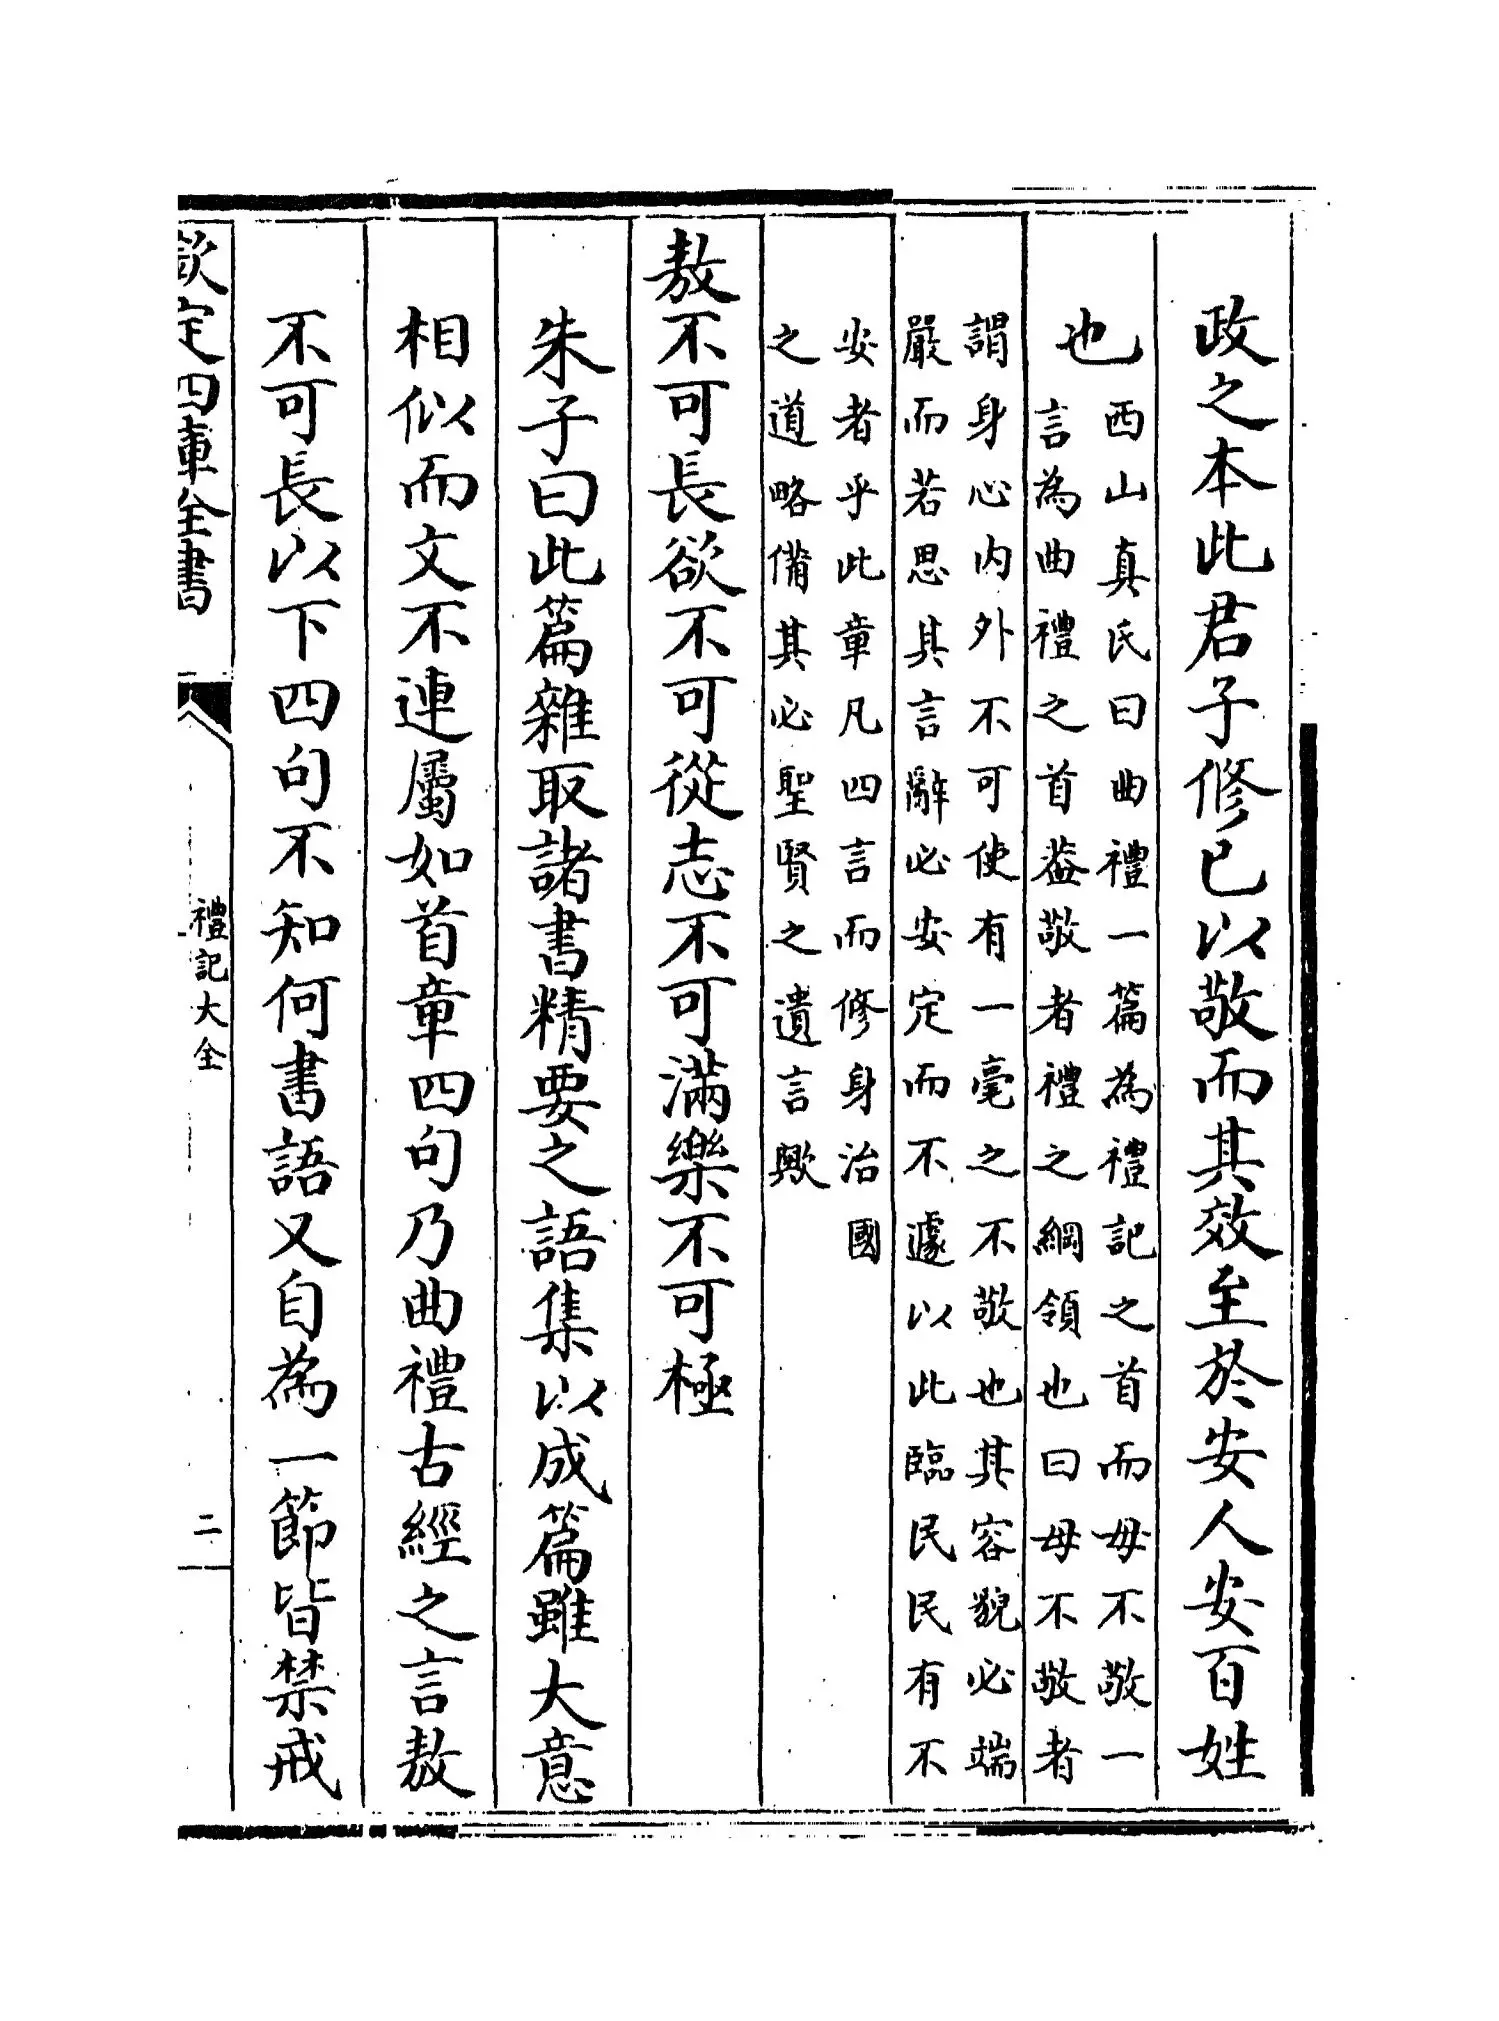 政之本此君子修已以敬而其效至於安人安百姓
也
西山真氏曰曲禮一篇為禮記之首而毋不敬一
言為曲禮之首葢敬者禮之綱領也曰毋不敬者
謂身心内外不可使有一毫之不敬也其容貌必端
嚴而若思其言辭必安定而不遽以此臨民民有不
安者乎此章凡四言而修身治國
之道略備其必聖賢之遺言歟
敖不可長欲不可從志不可滿樂不可極
朱子曰此篇雜取諸書精要之語集以成篇雖大意
相似而文不連屬如首章四句乃曲禮古經之言敖
不可長以下四句不知何書語又自為一節皆禁戒
欽定四庫全書
禮記大全
二